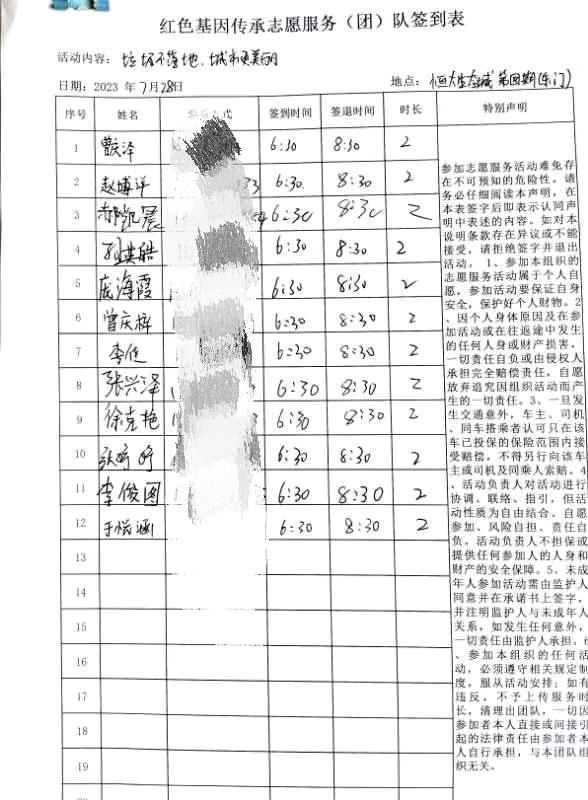 红色基因传承志愿服务（团）队签到表
活动内容：垃圾不落地，城市更美丽
日期：2023 年7月28日
地点：恒大生态城第四期(东门)
序号 姓名 签到时间 签退时间 时长 特别声明
1 曹庆泽 6:30 8:30 2
2 赵博洋 6:30 8:30 2
3 郝凯晨 6:30 8:30 2
4 孙琪皓 6:30 8:30 2
5 庞海霞 6:30 8:30 2
6 曾庆梓 6:30 8:30 2
7 李征 6:30 8:30 2
8 张兴泽 6:30 8:30 2
9 徐克艳 6:30 8:30 2
10 张 6:30 8:30 2
11 李俊图 6:30 8:30 2
12 于涵 6:30 8:30 2
13
14
15
16
17
18
19
参加志愿服务活动难免存
在不可预知的危险性。请
务必仔细阅读本声明，在
本表签字后即表示认同声
明中表述的内容。如对本
说明条款存在异议或不能
接受，请拒绝签字并退出
活动。1、参加本组织的
志愿服务活动属于个人自
愿，参加活动要保证自身
安全，保护好个人财物。2
、因个人身体原因及在参
加活动或在往返途中发生
的任何人身或财产损害，
一切责任自负或由侵权人
承担完全赔偿责任，自愿
放弃追究因组织活动而产
生的一切责任。3、一旦发
生交通意外，车主、司机
、同车搭乘者认可只在该
车已投保的保险范围内接
受赔偿，不得另行向该车
主或司机及同乘人索赔。4
、活动负责人对活动进行
协调、联络、指引，但活
动性质为自由结合、自愿
参加、风险自担、责任自
负。活动负责人不担保或
提供任何参加人的人身和
财产的安全保障。5、未成
年人参加活动需由监护人
同意并在承诺书上签字，
并注明监护人与未成年人
关系，如发生任何意外，
一切责任由监护人承担。6
、参加本组织的任何活
动，必须遵守相关规定制
度，服从活动安排；如有
违反，不予上传服务时
长，清理出团队，一切因
参加者本人直接或间接引
起的法律责任由参加者本
人自行承担，与本团队组
织无关。